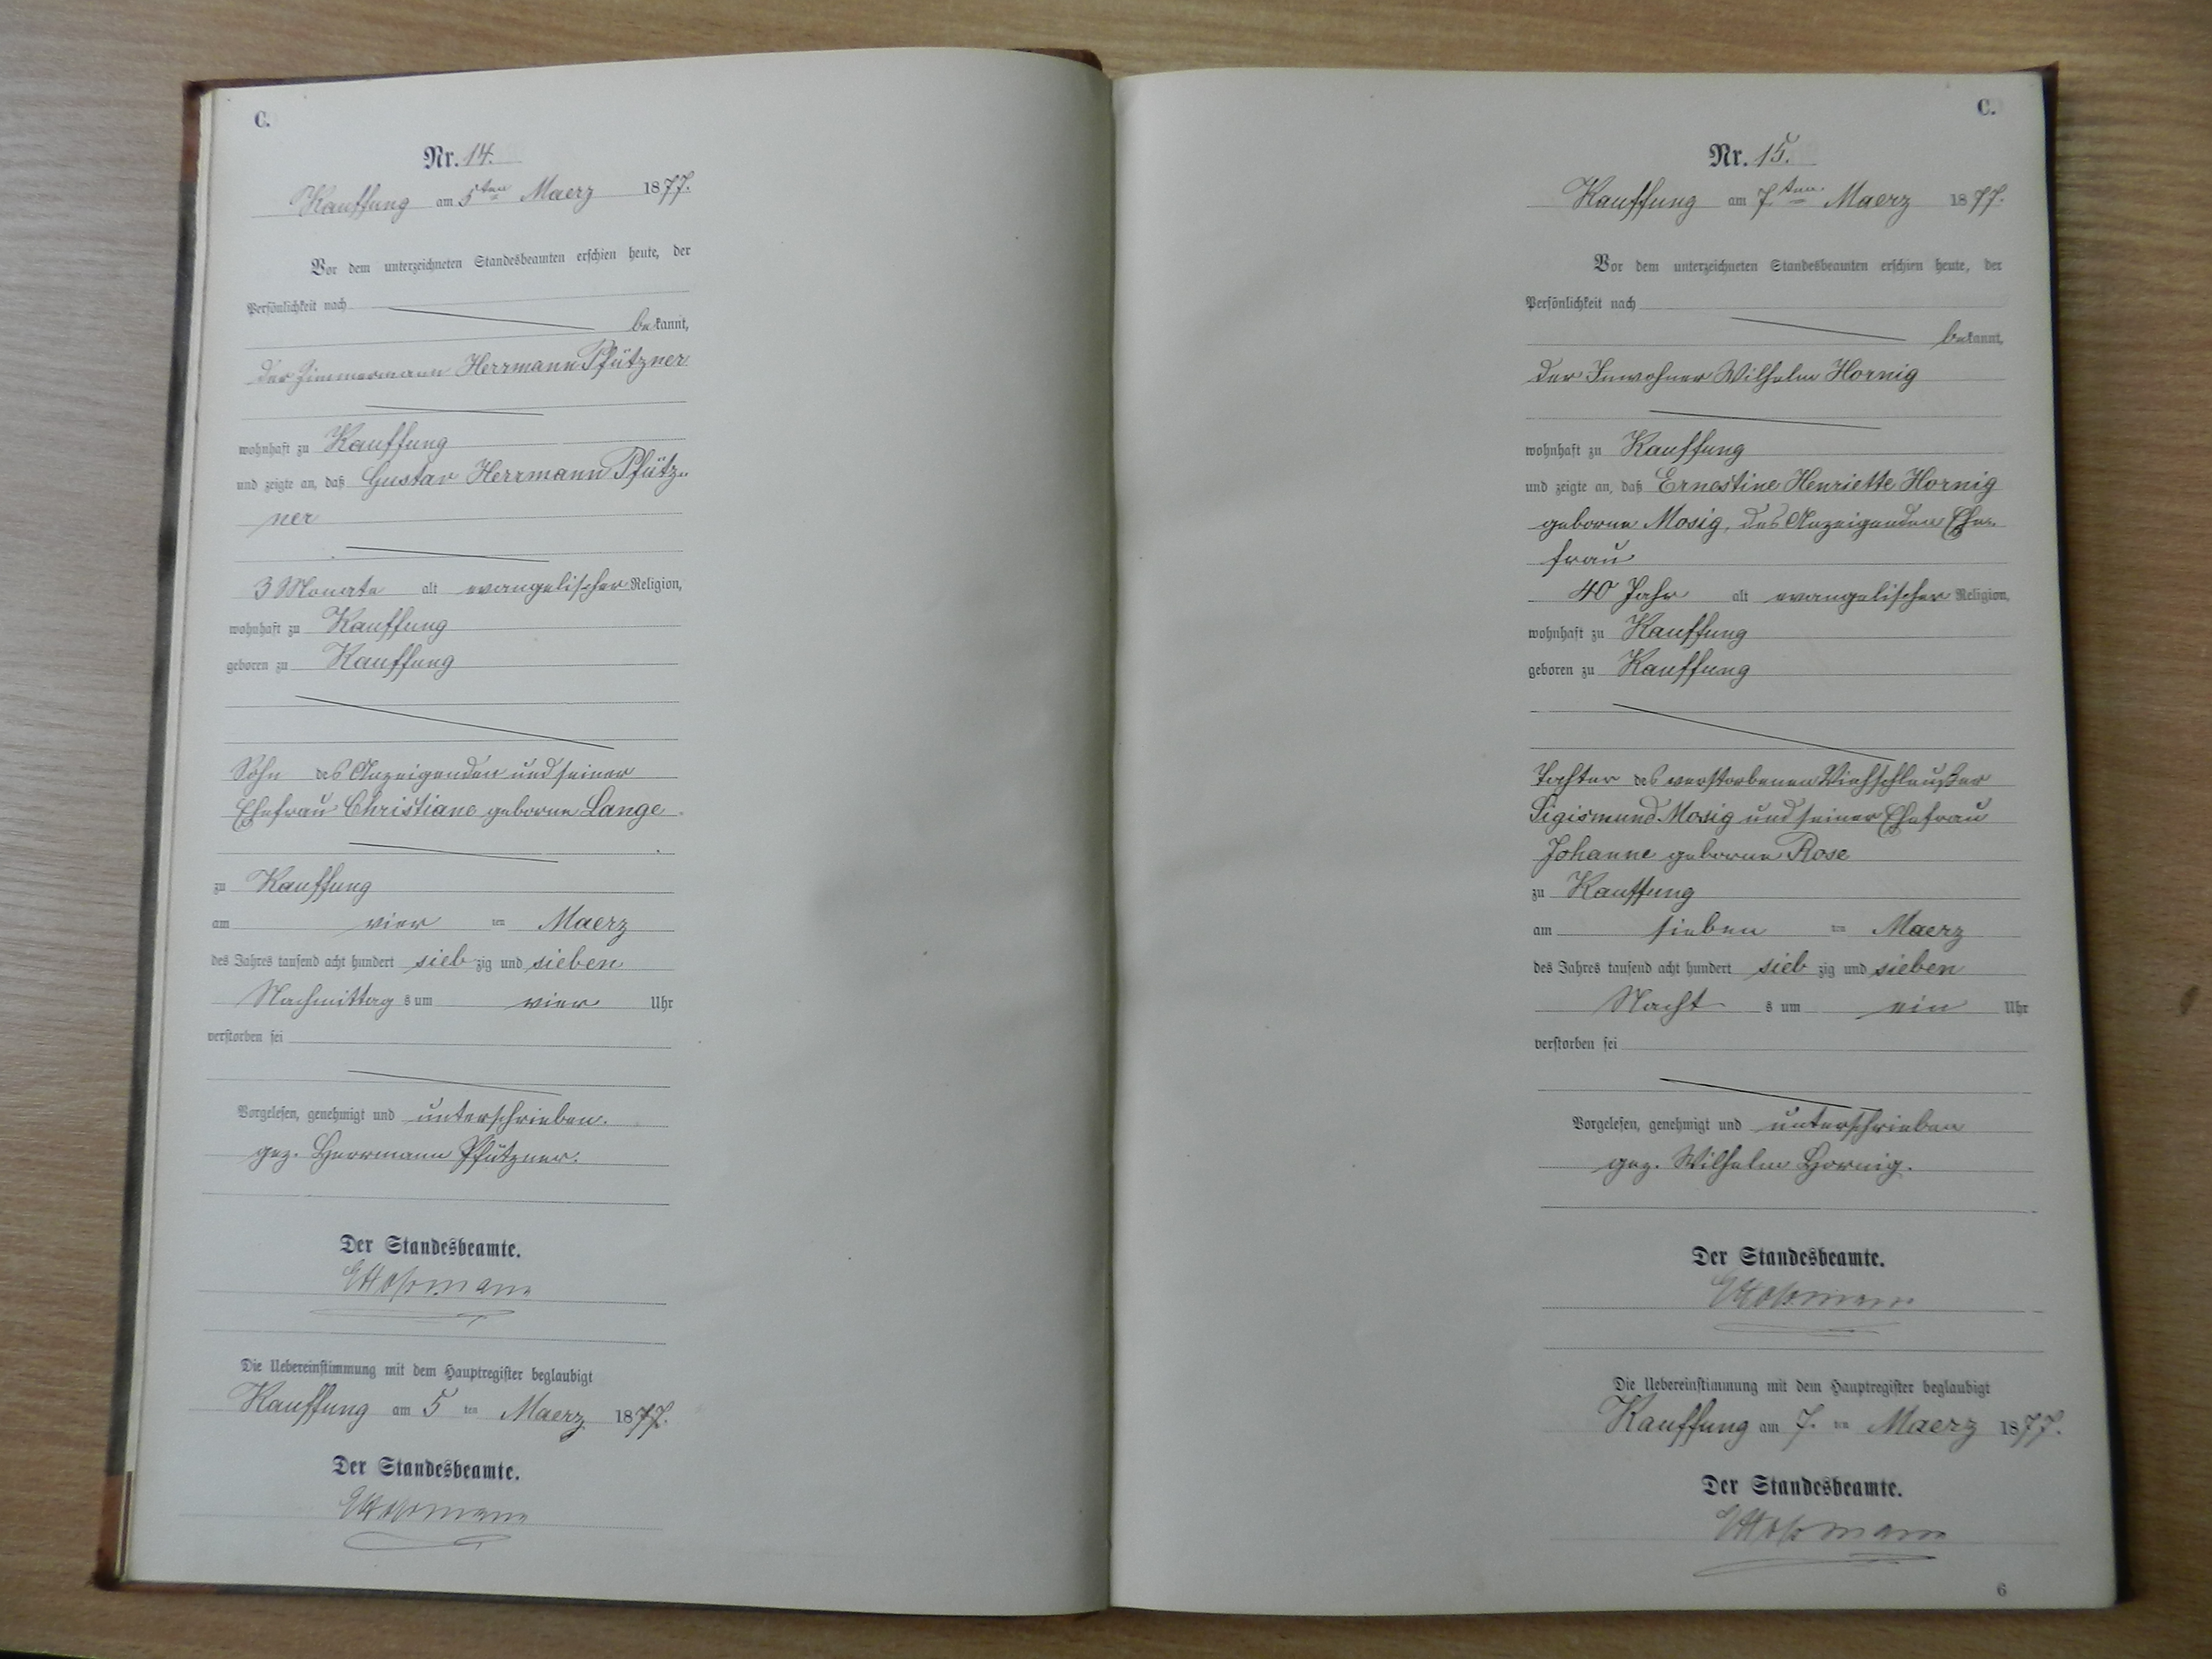 C.
Nr. 14.
Kauffung am 5ten Maerz 1877.
Vor dem unterzeichneten Standesbeamten erschien heute, der
Persönlichkeit nach
bekannt,
der Zimmermann Herrmann Pfützner
wohnhaft zu Kauffung
und zeigte an, daß Gustav Herrmann Pfütz-
ner
3 Monate alt evangelischer Religion,
wohnhaft zu Kauffung
geboren zu Kauffung
Sohn des Anzeigenden und seiner
Ehefrau Christiane geborne Lange
zu Kauffung
am vier ten Maerz
des Jahres tausend acht hundert sieb zig und sieben
Nachmittag s um vier Uhr
verstorben sei
Vorgelesen, genehmigt und unterschrieben.
gez. Herrmann Pfützner.
Der Standesbeamte.
Die Uebereinstimmung mit dem Hauptregister beglaubigt
Kauffung am 5 ten Maerz 1877.
Der Standesbeamte.
C.
Nr. 15.
Kauffung am 7ten Maerz 1877.
Vor dem unterzeichneten Standesbeamten erschien heute, der
Persönlichkeit nach
bekannt,
der Inwohner Wilhelm Hornig
wohnhaft zu Kauffung
und zeigte an, daß Ernestine Henriette Hornig
geborne Mosig, des Anzeigenden Ehe-
frau
40 Jahr alt evangelischer Religion,
wohnhaft zu Kauffung
geboren zu Kauffung
Tochter des verstorbenen Viehschleußer
Sigismund Mosig und seiner Ehefrau
Johanne geborne Rose
zu Kauffung
am sieben ten Maerz
des Jahres tausend acht hundert sieb zig und sieben
Nacht s um ein Uhr
verstorben sei
Vorgelesen, genehmigt und unterschrieben
gez. Wilhelm Hornig.
Der Standesbeamte.
Die Uebereinstimmung mit dem Hauptregister beglaubigt
Kauffung am 7. ten Maerz 1877.
Der Standesbeamte.
6